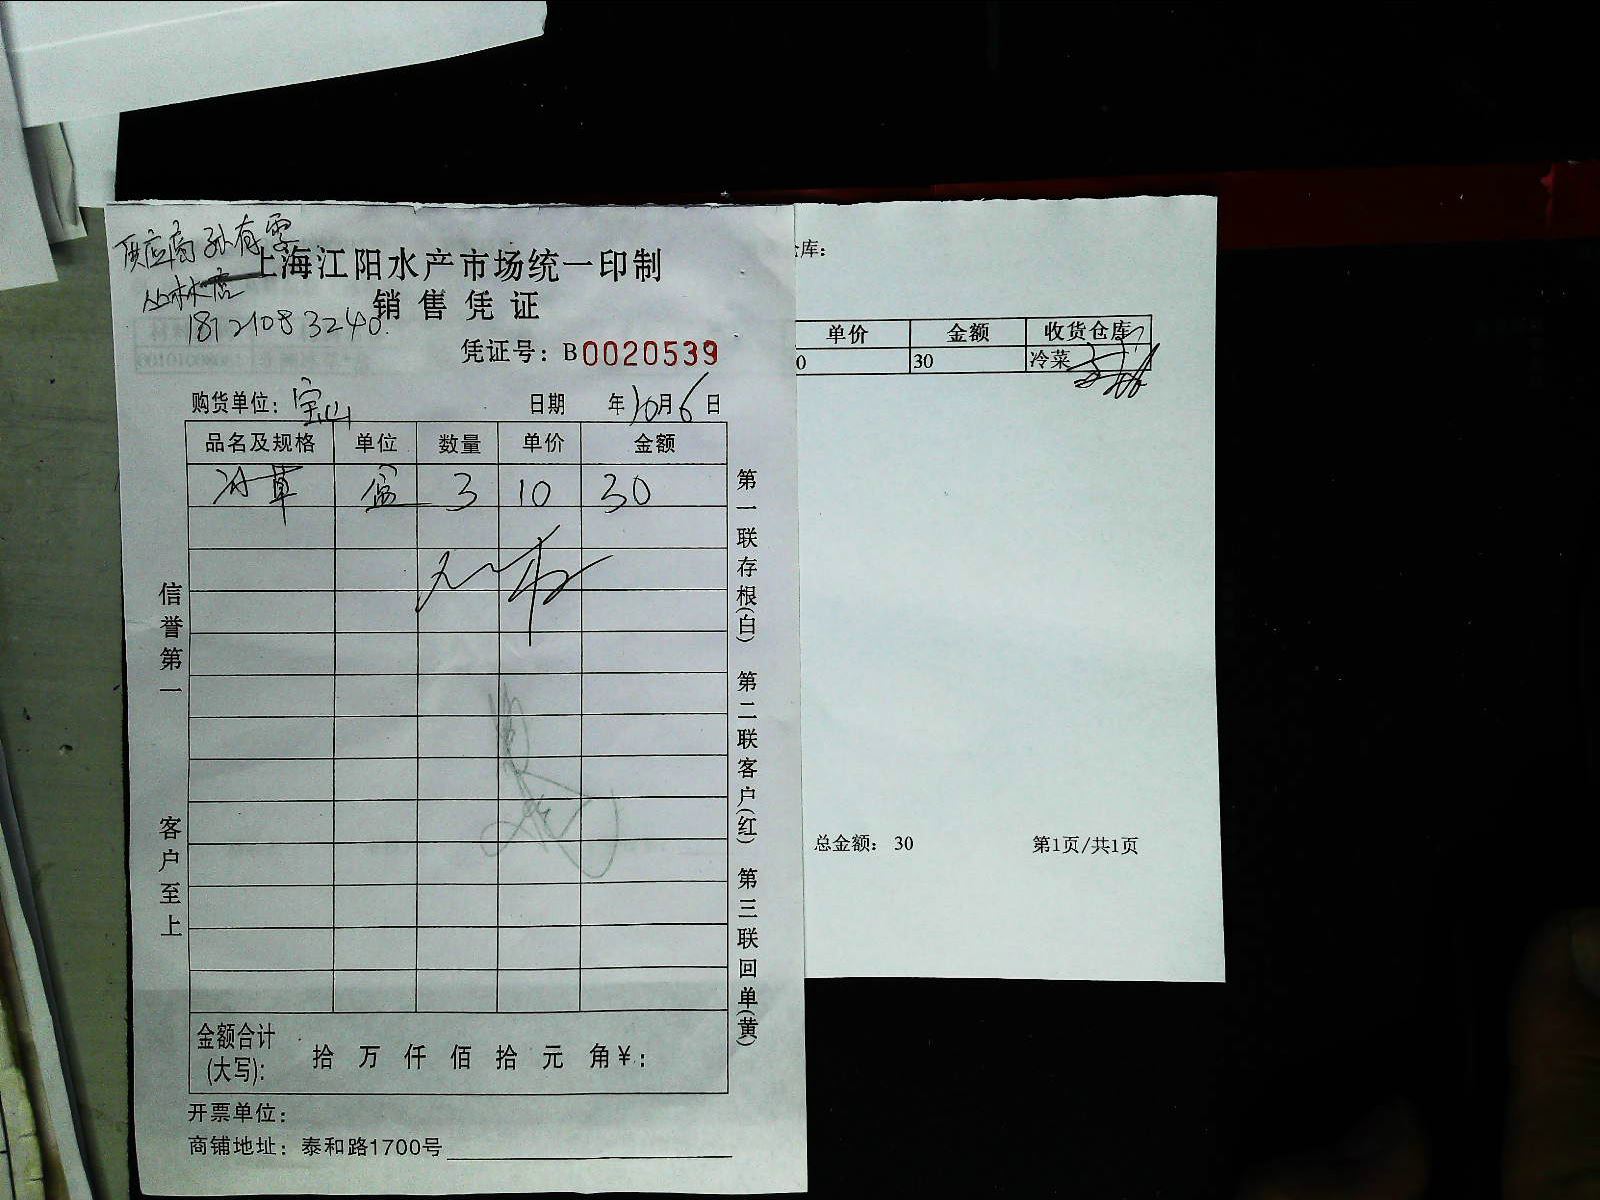 供应商 孙有雲
丛林水店
18121083240
上海江阳水产市场统一印制
销售凭证
凭证号：B0020539
购货单位：宝山 日期 年10月6日
品名及规格 单位 数量 单价 金额
冰草 盒 3 10 30
信誉第一 客户至上
第一联存根(白) 第二联客户(红) 第三联回单(黄)
金额合计
(大写)： 拾 万 仟 佰 拾 元 角¥：
开票单位：
商铺地址：泰和路1700号
仓库：
单价 金额 收货仓库
0 30 冷菜
总金额： 30 第1页/共1页